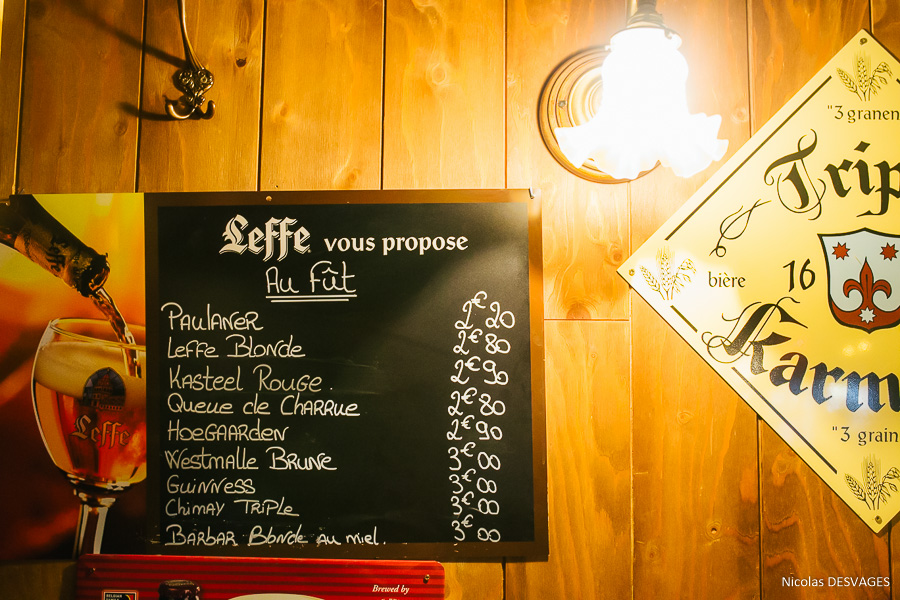 Leffe vous propose
Au Fût
Paulaner 2€20
Leffe Blonde 2€80
Kasteel Rouge. 2€90
Queue de Charrue 2€80
Hoegaarden 2€90
Westmalle Brune 3€00
Guinness 3€00
Chimay Triple 3€00
Barbar Blonde au miel. 3€00
Leffe
"3 granen
Trip
bière 16
Karm
"3 grain
Brewed by
Nicolas DESVAGES